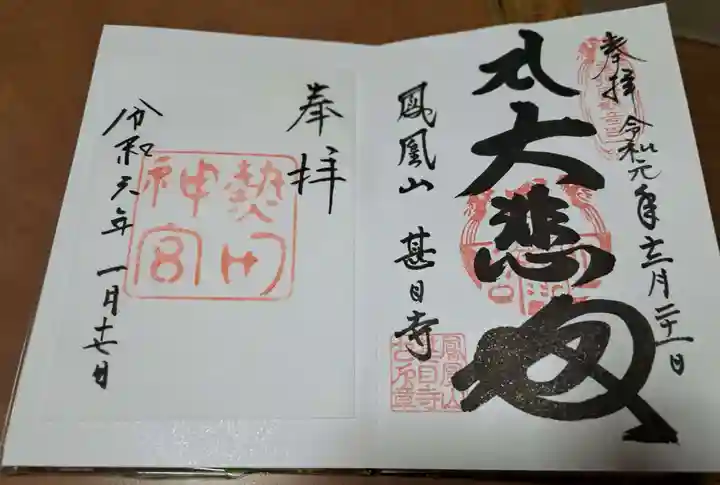 奉拝
令和元年十二月二十一日
大悲殿
鳳凰山 甚目寺
鳳凰山
甚目寺
奉拝
熱田
神宮
令和六年 一月十七日